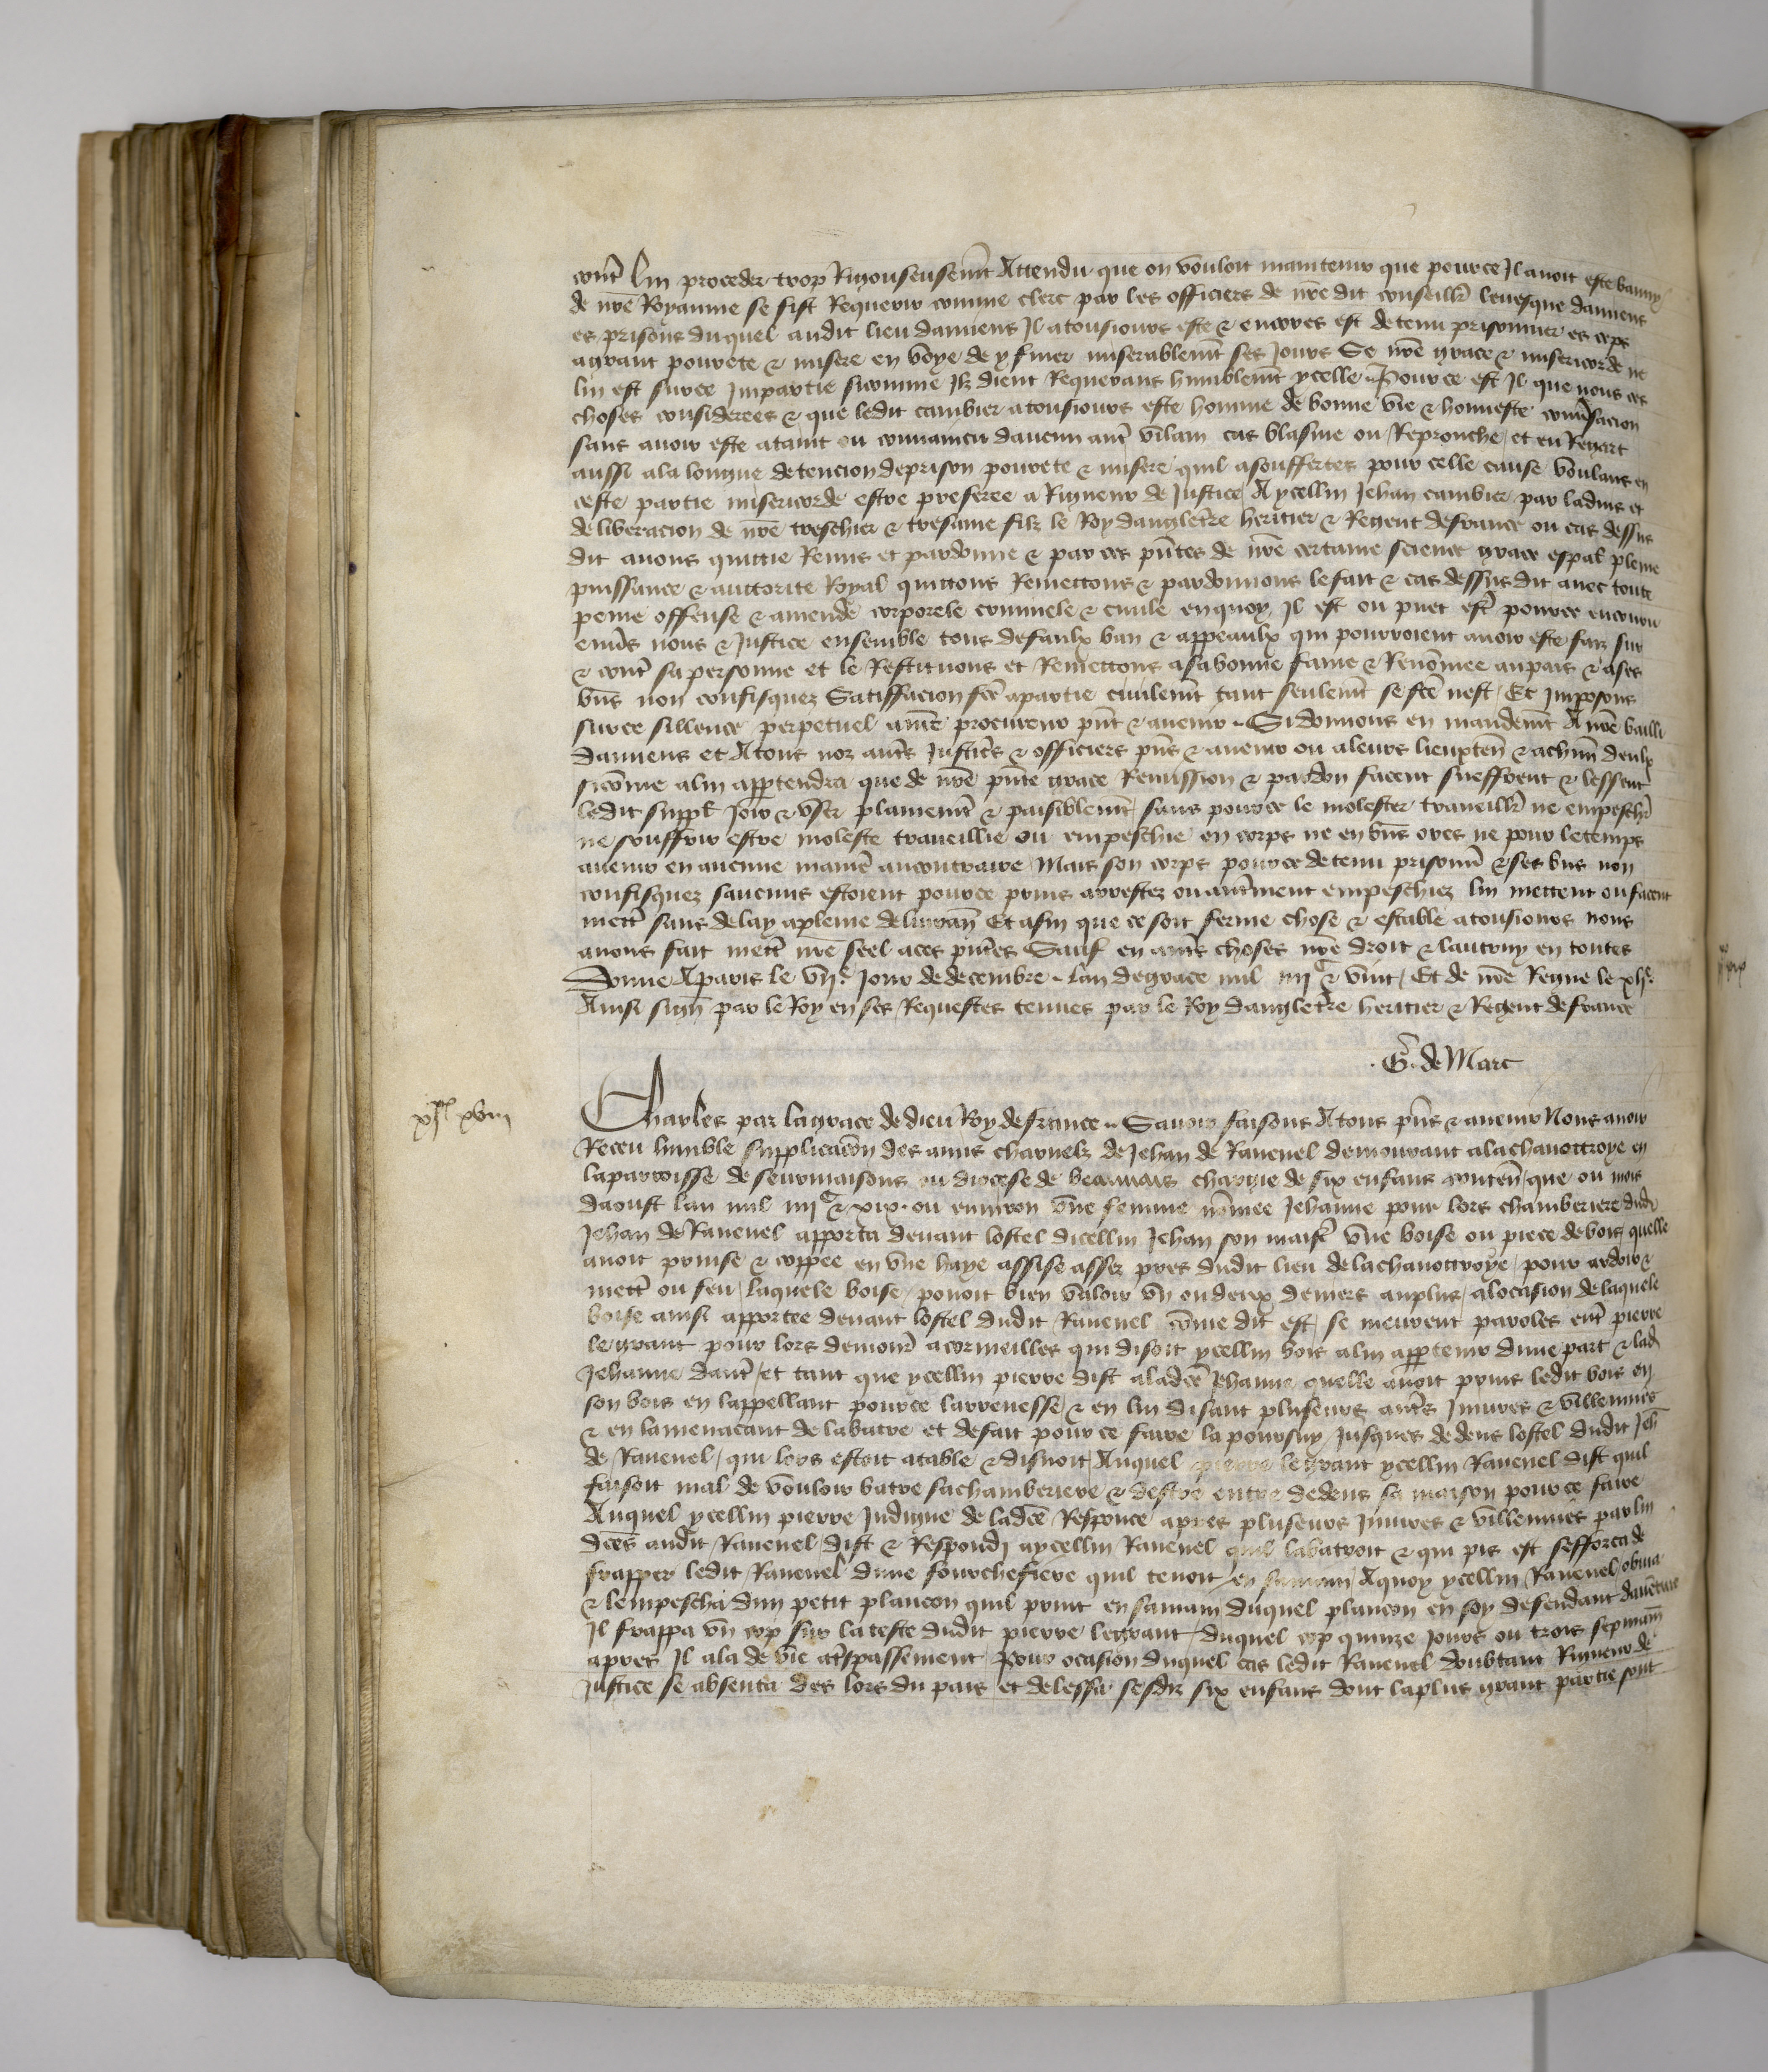 contr̃ lui proceder trop Rigouseusemt̃ Attendu que on vouloit maintenir que pource Il auoit este banny
de nr̃e Royaume se fist Requerir comme clerc par les officiers de nr̃e dit conseillr̃ leuesque damiens
es prisons duquel audit lieu damiens Il atousiours este & encores est detenu prisonnier es ceps
agrant pourete & misere en voye de y finer miserablemt̃ ses Jours Se nr̃e grace & misericorde ne
lui est surce Impartie sicomme Ilz dient Requerans humblemt̃ ycelle Pource est Il que nous ces
choses considerees & que ledit cambier atousiours este homme de bonne vie & honneste conũsacion
sans auoir este ataint ou conuaincu daucun autr̃ vilain cas blasme ou Reprouche et eu Regart
aussi ala longue detencion deprison pourete & misere quil asouffertes pour celle cause voulans en
ceste partie misericorde estre preferee a Rigueur de Justice A ycellui Jehan cambier par laduis et
deliberacion de nr̃e treschier & tresame filz le Roy dangleterr̃e heritier & Regent defrance ou cas dessus
dit auons quittie Remis et pardonne & par ces pñtes de nr̃e certaine science grace espal̃ pleine
puissance & auctorite Royal quittons Remettons & pardonnons lefait & cas dessus dit auec toute
peine offense & amende corporele criminele & ciuile enquoy Il est ou puet estr̃ pource encouru
enuṽs nous & Justice ensemble tous defaulx ban & appeaulx qui pourroient auoir este faiz sur
& contr̃ sapersonne et le Restituons et Remettons asabonne fame & Renõmee aupais & ases
bñs non confisquez Satiffacion fcẽ apartie ciuilemt̃ tant seulemt̃ se fcẽ nest Et Imposons
surce sillence perpetuel a nr̃e procureur pñt & auenir Si donnons en mandemt̃ A nr̃e bailli
damiens et Atous noz autr̃s Justicr̃s & officiers pñs & auenir ou aleurs lieuxten̄ & achũn deulx
sicõme alui apptendra que de nr̃e pñte grace Remission & pardon facent sueffrent & lessent
ledit suppl̃ Joir & vser plainemt̃ & paisiblemt̃ sans pource le molester trauaillr̃ ne empeschr̃
ne souffrir estre moleste traueillie ou empeschie en corps ne en bñs ores ne pour letemps
auenir en aucune manier̃ aucontraire Mais son corps pource detenu prisonñ & ses bñs non
confisquez saucuns estoient pource prins arrestez ou autr̃ment empeschiez lui mettent ou facent
mettr̃ sans delay apleine deliuran̄ Et afin que ce soit ferme chose & estable atousiours nous
auons fait mettr̃ nr̃e seel aces pñtes Sauf en autr̃s choses nr̃e droit & lautruy en toutes
Donne Aparis le vijᵉ Jour dedecembre lan degrace mil iiijᶜ & vint Et de nr̃e Regne le xljᵉ
Ainsi sign̄ par le Roy en ses Requestes tenues par le Roy dangleterr̃e heritier & Regent defrance
. G. de Marc
Charles par lagrace dedieu Roy defrance Sauoir faisons Atous pñs & auenir Nous auoir
Receu humble supplicacõn des amis charnelz de Jehan de Rauenel demourant alachauottroye en
laparroisse de seurmaisons ou diocese de beauuais chargie de six enfans conten̄ que ou mois
daoust lan mil iiijᶜ & xix. ou enuiron vne femme nõmee Jehanne pour lors chamberiere dudi
Jehan de Rauenel apporta deuant lostel dicellui Jehan son maistr̃ vne boise ou piece debois quelle
auoit prinse & coppee en vne haye assise assez pres dudit lieu de lachauottroye pour ardoir &
mettr̃ ou feu laquele boise pouoit bien valoir vn ou deux deniers auplus alocasion de laquele
boise ainsi apportee deuant lostel dudit Rauenel cõme dit est se meurent paroles entr̃ pierre
legrant pour lors demour̃ acormeilles qui disoit ycellui bois alui apptenir dune part & lad
Jehanne dautr̃ et tant que ycellui pierre dist aladcẽ Jehanne quelle auoit prins ledit bois en
son bois en lappellant pource larrenesse & en lui disant pluseurs autr̃s Iniures & villennies
& en lamenacant de labatre et defait pource faire lapoursuy Jusques dedens lostel dudit Jeh̄
de Rauenel qui lors estoit atable & disnoit Auquel pierre legrant ycellui Rauenel dist quil
faisoit mal de vouloir batre sachamberiere & destre entre dedens sa maison pource faire
Auquel ycellui pierre Indigne de ladcẽ Responce apres pluseurs Iniures & villennies par lui
dcẽs audit Rauenel dist & Respondi aycellui Rauenel quil labatroit & qui pis est sefforca de
frapper ledit Rauenel dune fourchefiere quil tenoit en samain Aquoy ycellui Rauenel obuia
& lempescha dun petit plancon quil print ensamain duquel plancon en soy defendant dauenture
Il frappa vn cop sur lateste dudit pierre legrant duquel cop quinze Jours ou trois sepmain̄
apres Il ala de vie atr̃spassement Pour ocasion duquel cas ledit Rauenel doubtant Rigueur de
Justice se absenta des lors du pais et delessa sesdiz six enfans dont laplus grant partie sont